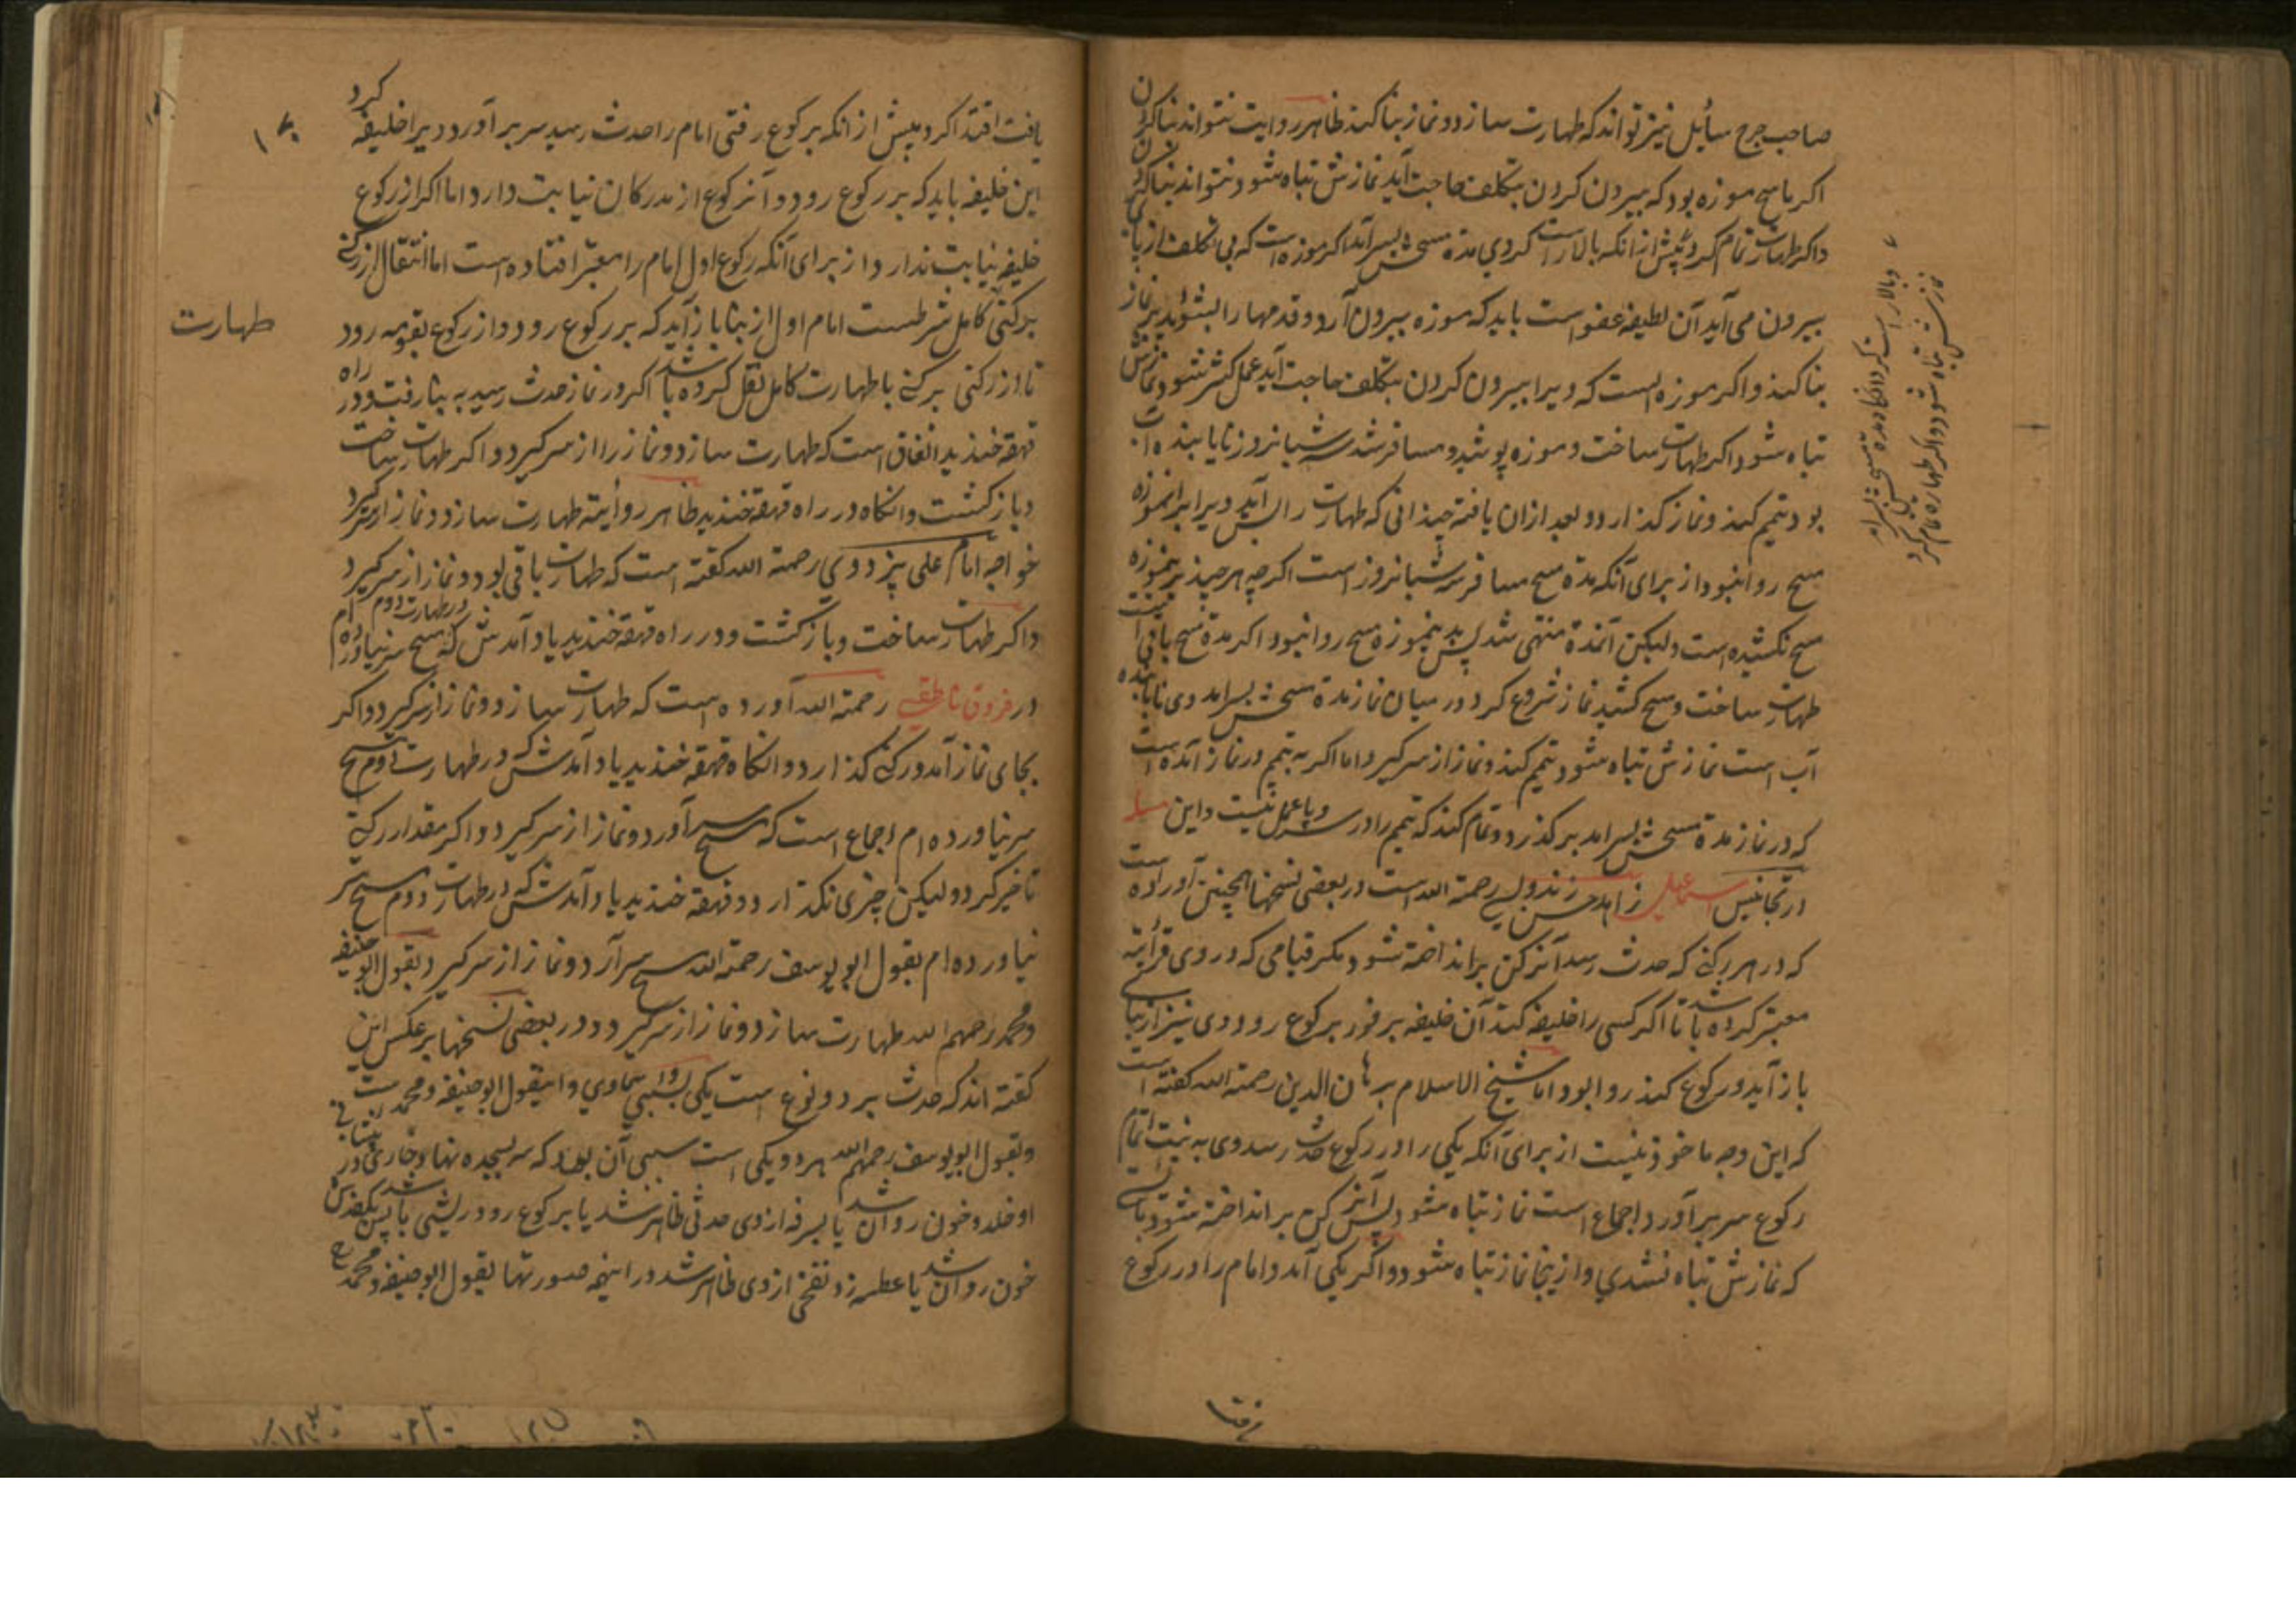 صاحب جرح سائل نیز تواند که طهارت سازد و نماز بنا کند ظاهر روایت نتواند بنا کردن
اگر ماسح موزه بود که بیرون کردن بتکلف حاجت آید نمازش تباه شود و نتواند بنا کردن
و اگر طهارت تمام کرد پیش از انکه بالا راست کردی مدة مسحش بسر آمد اگر موزه است که بی تکلف از پای
بیرون می آید آن لطیفه عفو است باید که موزه بیرون آرد و قدمها را بشوید بر نماز
بنا کند و اگر موزه است که ویرا بیرون کردن بتکلف حاجت آید عمل کثیر شود و نمازش
تباه شود اگر طهارت ساخت و موزه پوشید و مسافر شد سه شبانروز نایابنده آب
بود تیمم کند و نماز گذارد و بعد ازان یافته چندانی که طهارت را بس آید ویرا برانموزه
مسح روا نبود از برای آنکه مدة مسح مسافر سه شبانروز است اگرچه هرچند برینموزه
مسح نکشیده است ولیکن آنمدة منتهی شد پس برینموزه مسح روا نبود اگر مدة مسح باقی است
طهارت ساخت و مسح کشید نماز شروع کرد در میان نماز مدة مسحش بسرامد وی نایابنده
آب است نمازش تباه شود تیمم کند و نماز از سر گیرد اما اگر به تیمم در نماز آمده است
که در نماز مدة مسحش بسرامد بر گذرد و تمام کند که تیمم را در سر و پا عمل نیست و این
در تجانیس اسماعیلی زاهد حسن زندولسی رحمة الله است در بعضی نسخها همچنین آورده است
که در هر رکنی که حدث رسد آنرکن برانداخته شود مگر قیامی که در وی قرأته
معتبر کرده باشد تا اگر کسی را خلیفه کند آن خلیفه بر فور بر کوع رود و وی نیز از بنا
باز آید در کوع کند روا بود اما شیخ الاسلام برهان الدین رحمة الله گفته است
که این وجه ماخوذ نیست از برای آنکه یکی را در رکوع حدث رسد وی به نیت اتمام
رکوع سر بر آورد اجماع است نماز تباه شود پس آنرکن برانداخته نشود
که نمازش تباه نشدی و ازینجا نماز تباه شود و اگر یکی آمد و امام را در رکوع
یافت اقتدا کرد پیش از انکه بر کوع رفتی امام را حدث رسید سر بر آورد ویرا خلیفه کرد
این خلیفه باید که بر رکوع رود و آنرکوع از مدرکان نیابت دارد اما اگر از رکوع
خلیفه نیابت ندارد از برای آنکه رکوع اول امام را معتبر افتاده است اما انتقال از رکنی
برکنی کامل شرطست امام اول از بنا باز آید که بر رکوع رود و از رکوع بقومه رود
تا از رکنی برکنی با طهارت کامل نقل کرده باشد اگر در نماز حدث رسید به بنا رفت و در راه
قهقه خندید اتفاق است که طهارت سازد و نماز را از سر گیرد و اگر طهارت ساخت
و باز گشت وانگاه در راه قهقه خندید ظاهر روایته طهارت سازد و نماز از سر گیرد
خواجه امام علی پزدوی رحمة الله گفته است که طهارت باقی بود و نماز از سر گیرد
و اگر طهارت ساخت و باز گشت و در راه قهقه خندید یاد آمدش که در طهارت دوم مسح سر نیاورده ام
در فروق ناطقی رحمة الله آورده است که طهارت سازد و نماز از سر گیرد و اگر
بجای نماز آمد و رکنی گذارد و انگاه قهقه خندید یاد آمدش که در طهارت دوم مسح
سر نیاورده ام اجماع است که مسح سر آورد و نماز از سر گیرد و اگر مقدار رکنی
تاخیر کرد و لیکن چیزی نگذارد و قهقه خندید یاد آمدش که در طهارت دوم مسح سر
نیاورده ام بقول ابو یوسف رحمة الله مسح سر آرد و نماز از سر گیرد و بقول ابو حنیفه
و محمد رحمهم الله طهارت سازد و نماز از سر گیرد و در بعضی نسخها بر عکس این
گفته اند که حدث بر دو نوع است یکی سببی سماوی و اینقول ابو حنیفه و محمد است
و بقول ابو یوسف رحمهم الله هر دو یکی است سببی آن بود که سر بسجده نهاد و خاری در
او خلد و خون روان شد یا بسرفه از وی حدثی ظاهر شد یا بر کوع رود ریشی باشد
خون روان شد یا عطسه زد نفخی از وی ظاهر شد در اینهمه صورتها بقول ابو حنیفه و محمد رح
طهارت